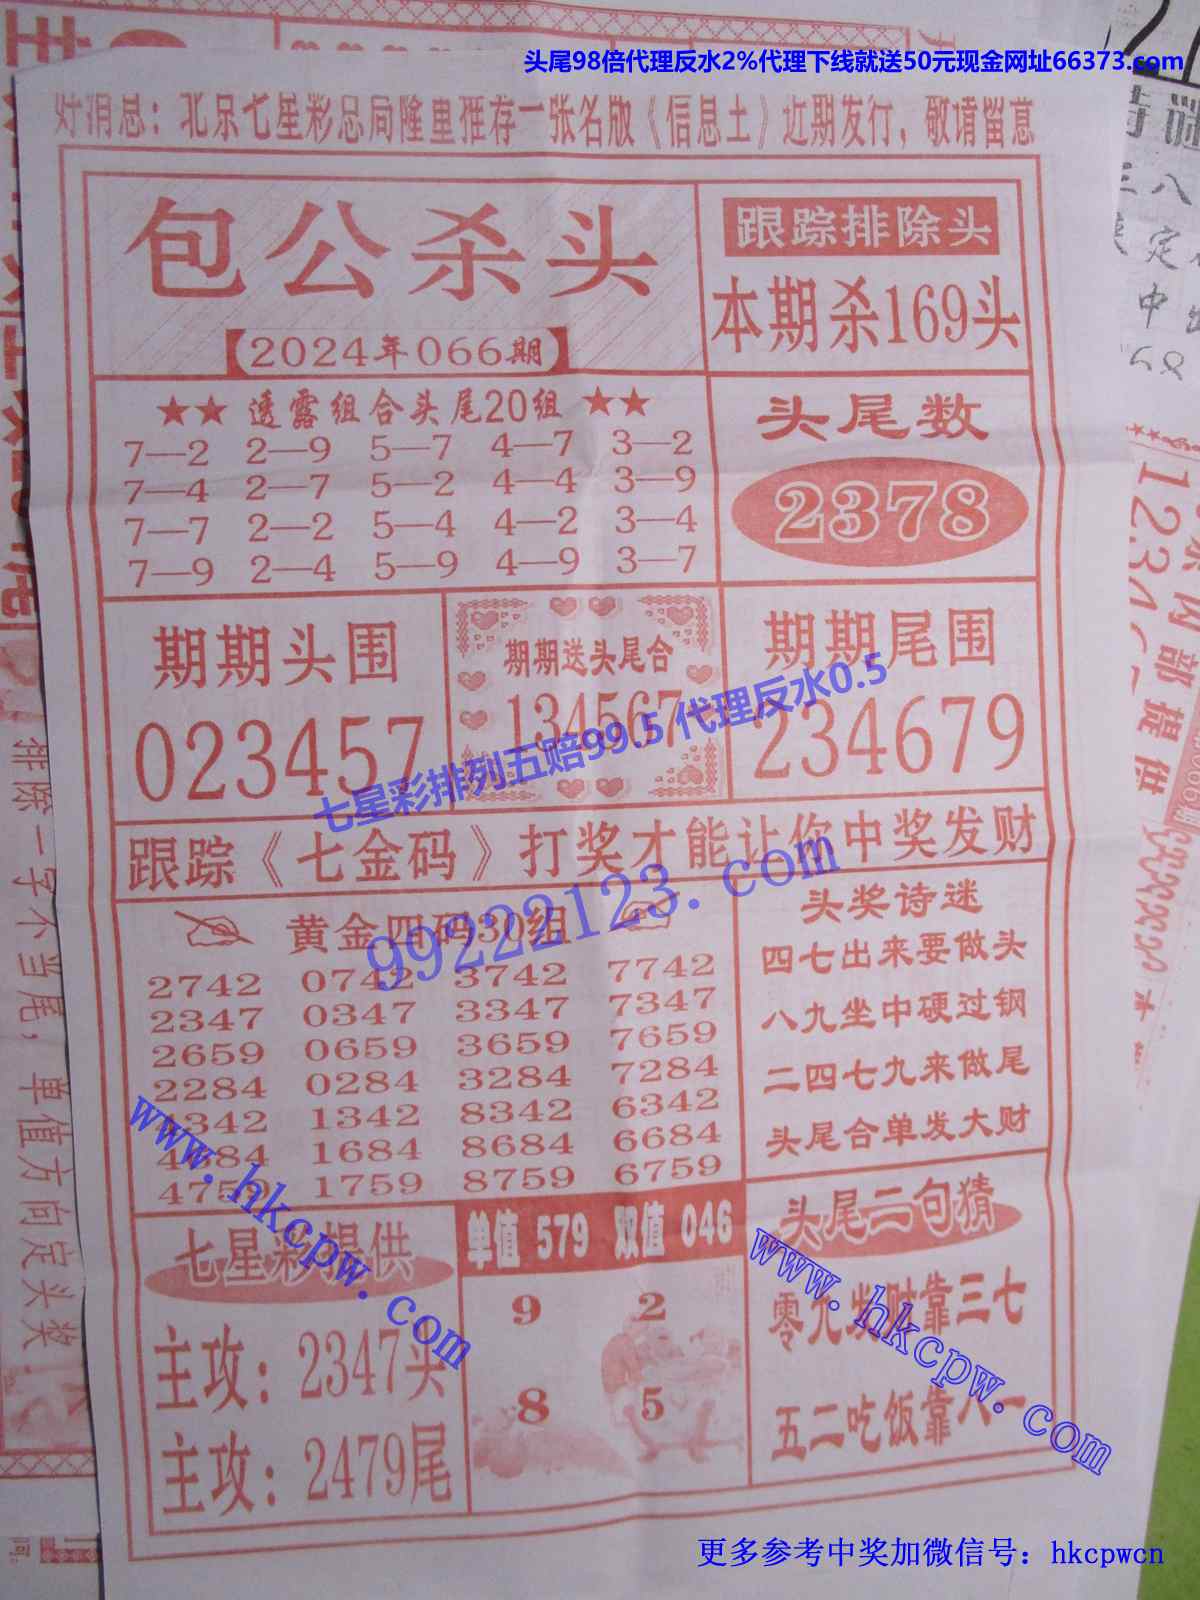 头尾98倍代理反水2%代理下线就送50元现金网址66373.com
好消息：北京七星彩总局隆重推荐一张名版《信息土》近期发行，敬请留意
包公杀头
【2024年066期】
跟踪排除头
本期杀169头
★★ 透露组合头尾20组 ★★
7—2 2—9 5—7 4—7 3—2
7—4 2—7 5—2 4—4 3—9
7—7 2—2 5—4 4—2 3—4
7—9 2—4 5—9 4—9 3—7
头尾数
2378
期期头围
023457
期期送头尾合
134567
期期尾围
234679
七星彩排列五赔99.5 代理反水0.5
跟踪《七金码》打奖才能让你中奖发财
99222123.com
黄金四码30组
2742 0742 3742 7742
2347 0347 3347 7347
2659 0659 3659 7659
2284 0284 3284 7284
4342 1342 8342 6342
4684 1684 8684 6684
4759 1759 8759 6759
头奖诗迷
四七出来要做头
八九坐中硬过钢
二四七九来做尾
头尾合单发大财
www.hkcpw.com
七星彩提供
主攻：2347头
主攻：2479尾
单值 579 双值 046
9 2
8 5
头尾二句猜
零九发财靠三七
五二吃饭靠八一
www.hkcpw.com
排除一字不当尾，单值方向定头奖
内部提供
更多参考中奖加微信号：hkcpwcn